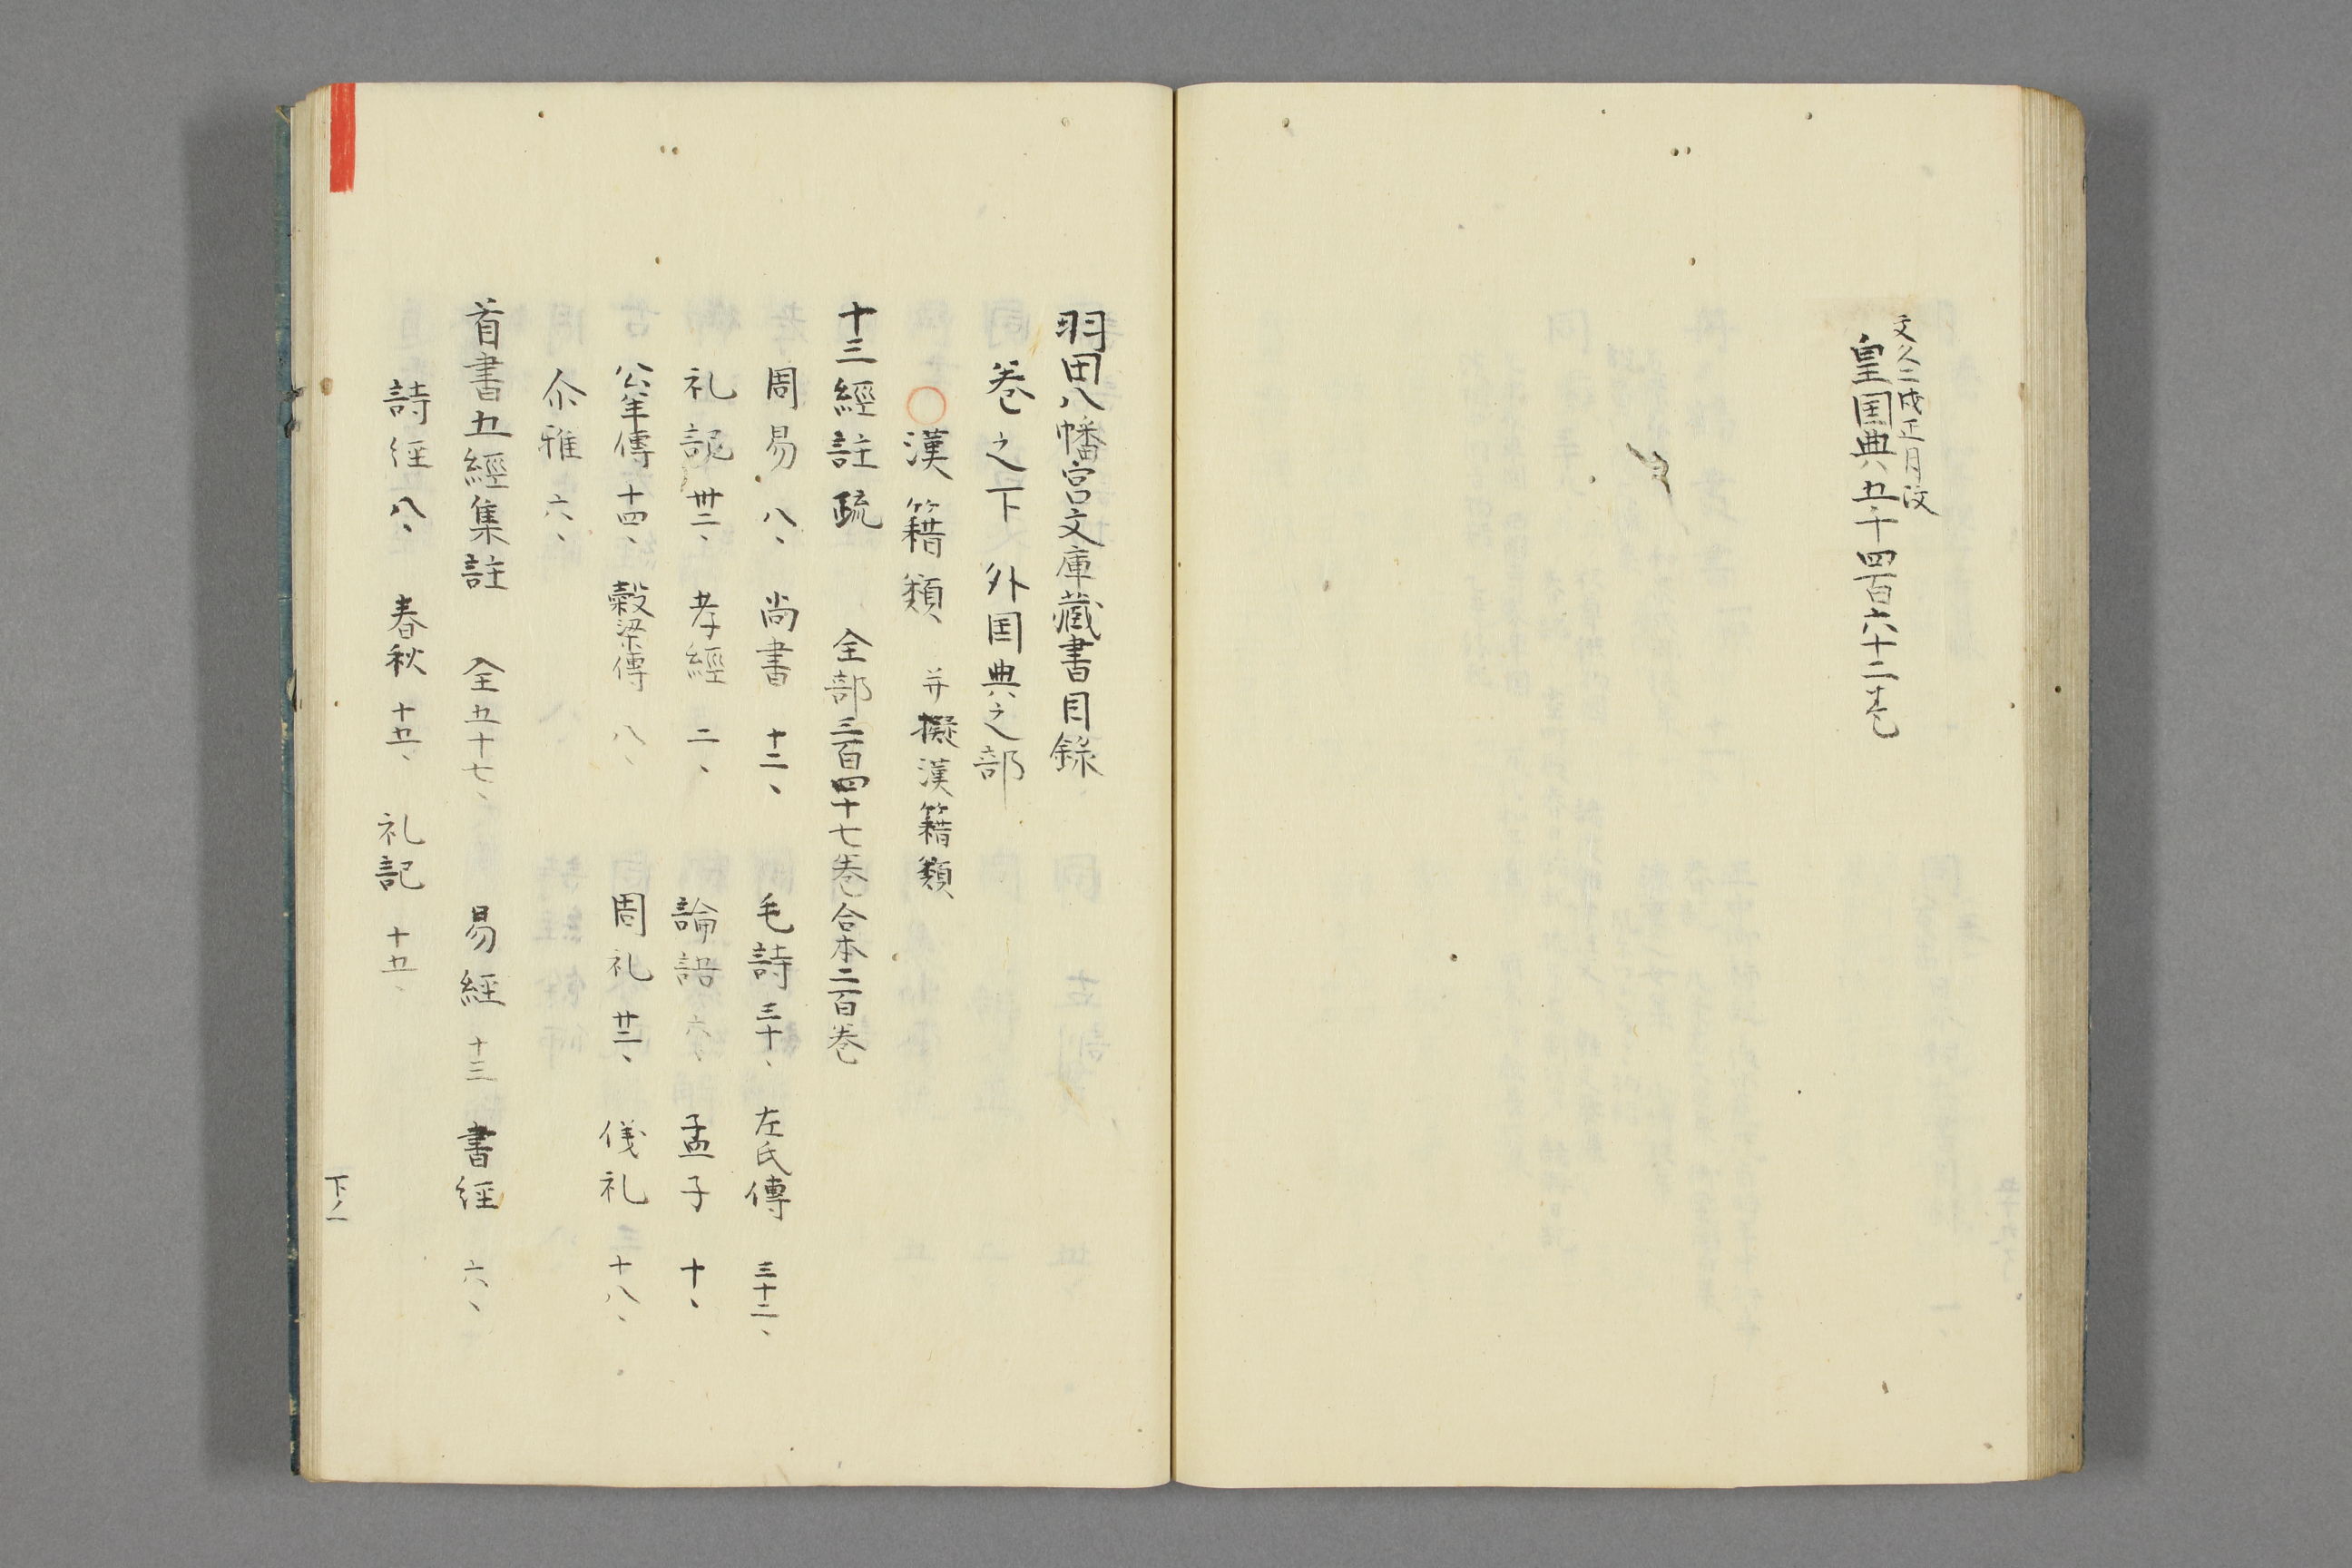 文久二戌正月改
皇国典五千四百六十二巻
羽田八幡宮文庫藏書目錄
巻之下 外国典之部
○漢籍類、 并擬漢籍類
十三經註疏 全部三百四十七巻合本二百巻
周易 八、 尚書 十二、 毛詩 三十、 左氏傳 三十二、
礼記 卅二、 孝經 二、 論語 六、 孟子 十、
公羊傳 十四、 穀梁傳 八、 周礼 廿二、 儀礼 十八、
尒雅 六、
首書五經集註 全五十七、 易經 十三 書経 六、
詩経 八、 春秋 十五、 礼記 十五、
下ノ一